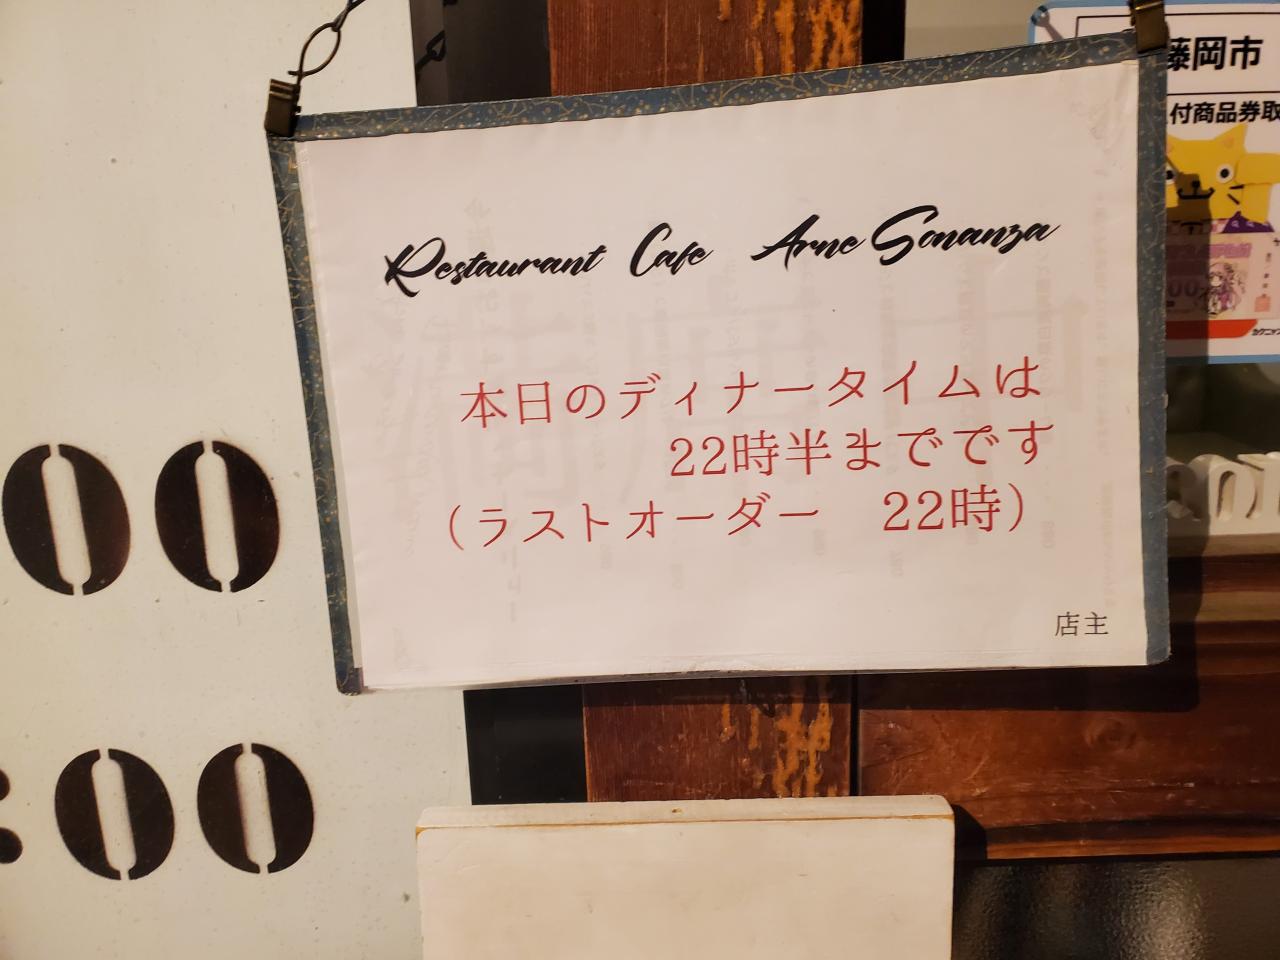 Restaurant Cafe Arne Sonanza
本日のディナータイムは
22時半までです
（ラストオーダー　22時）
店主
00
:00
藤岡市
付商品券取